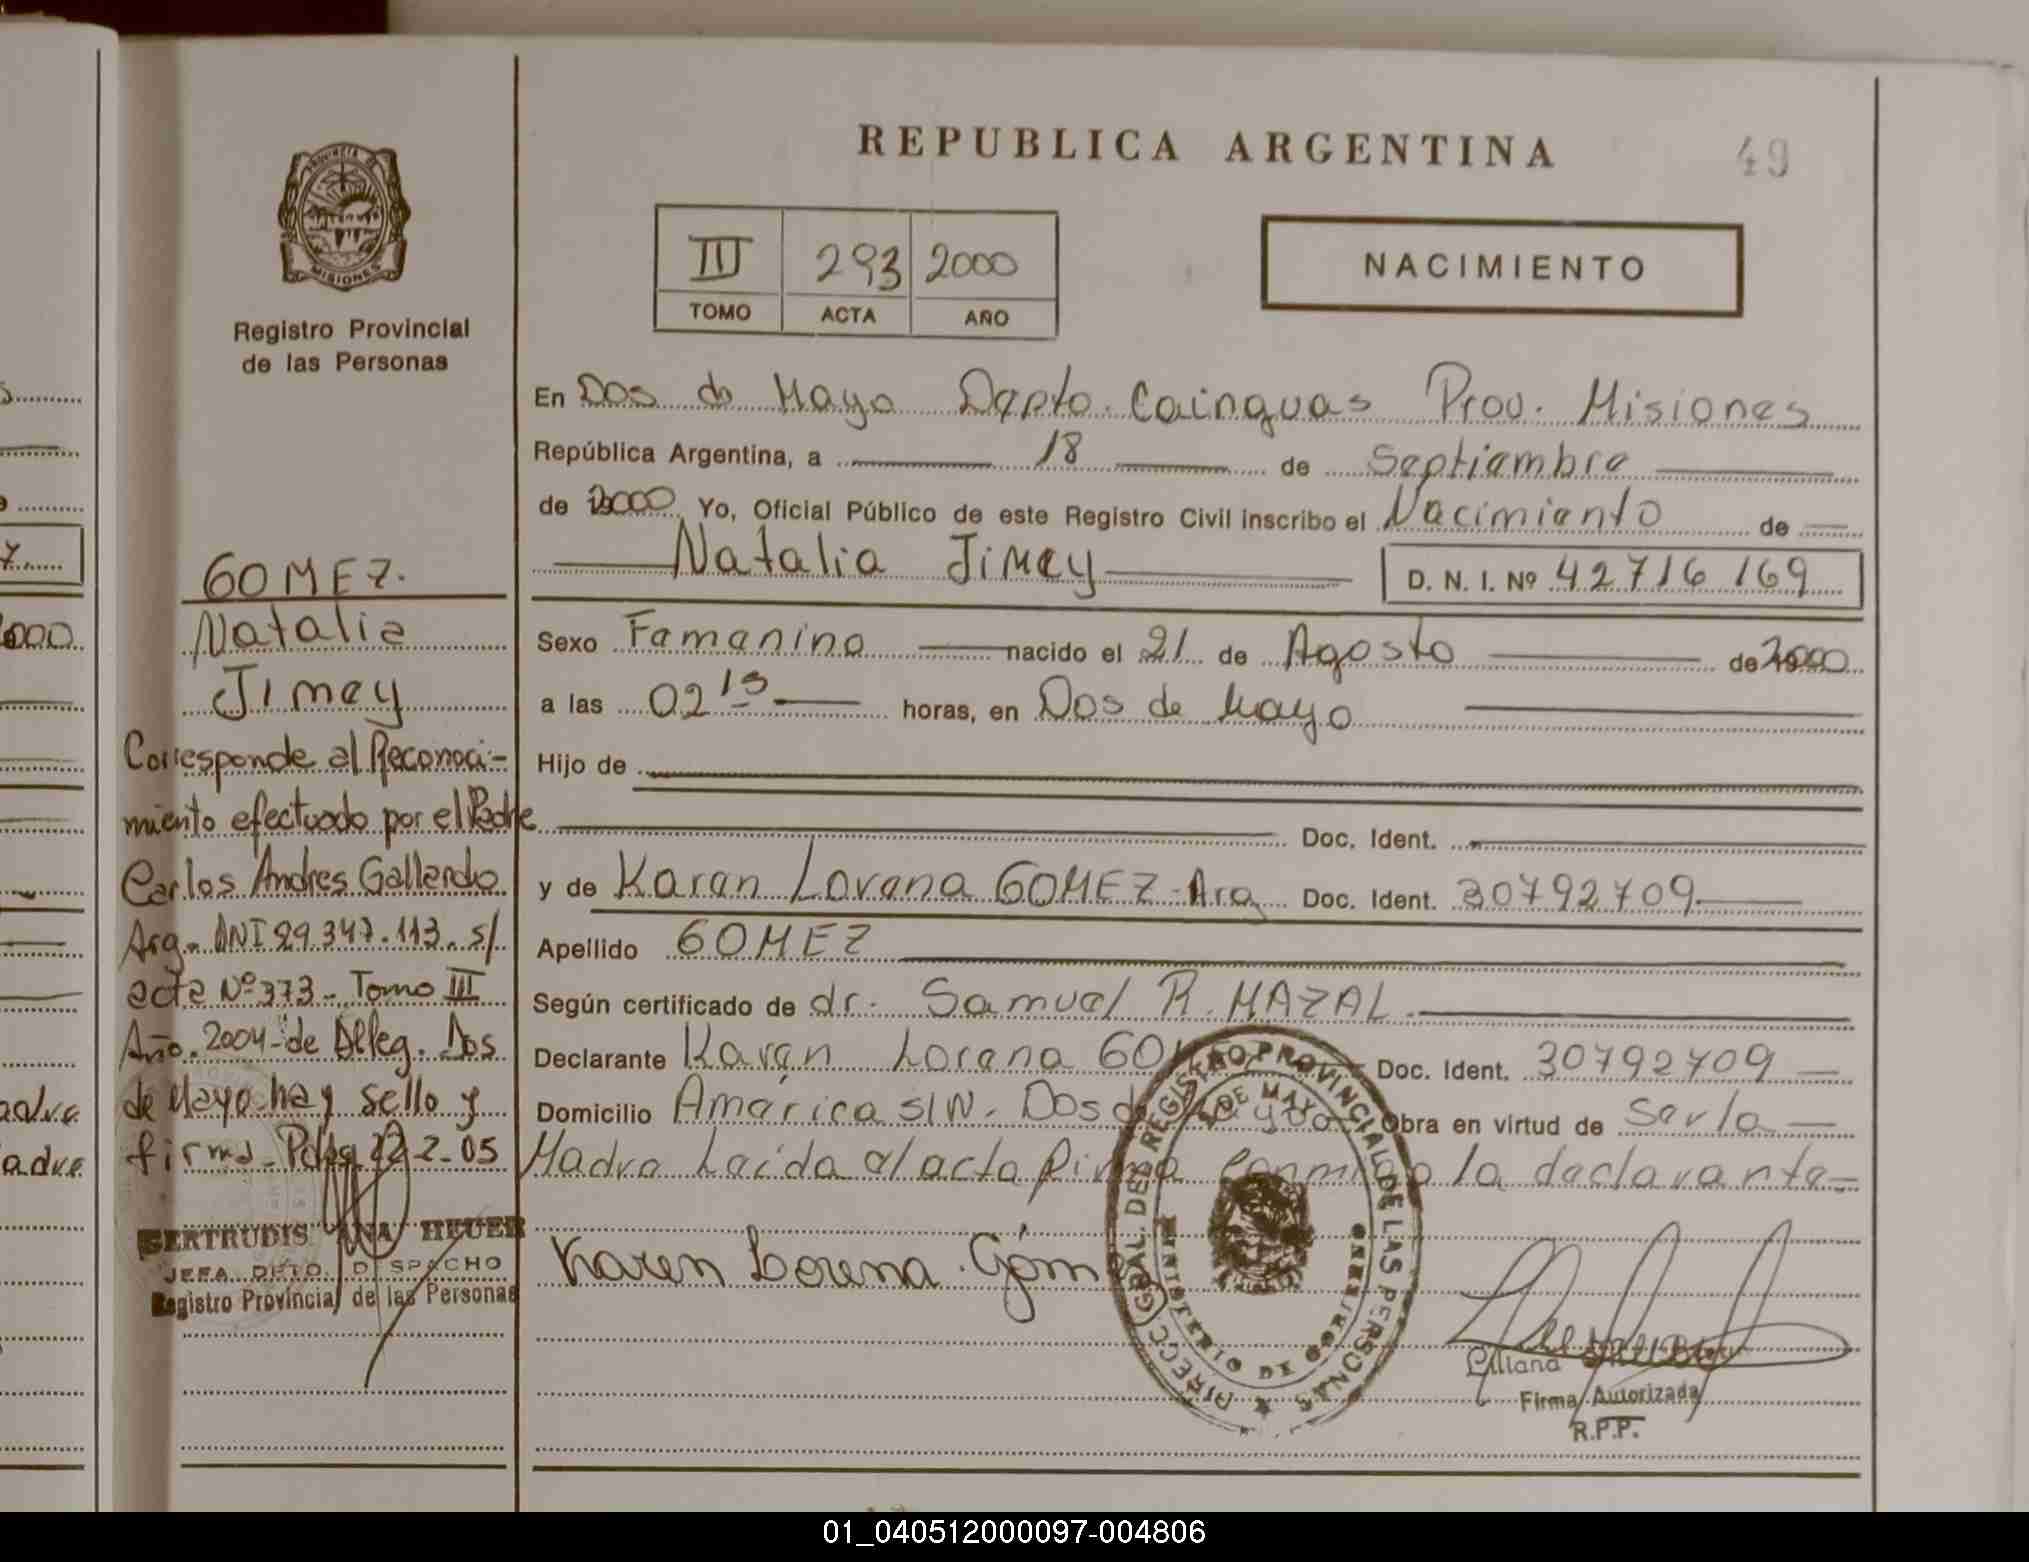 REPUBLICA ARGENTINA
49
PROVINCIA DE
MISIONES
Registro Provincial
de las Personas
III 293 2000
TOMO ACTA AÑO
NACIMIENTO
En Dos de Mayo Depto. Cainguas Prov. Misiones
República Argentina, a 18 de Septiembre
de 2000 Yo, Oficial Público de este Registro Civil inscribo el Nacimiento de
Natalia Jimey D. N. I. Nº 42716169
Sexo Femenino nacido el 21 de Agosto de 2000
a las 02 15 horas, en Dos de Mayo
Hijo de
Doc. Ident.
y de Karen Lorena GOMEZ-Arg Doc. Ident. 30792709
Apellido GOMEZ
Según certificado de dr. Samuel R. MAZAL.
Declarante Karen Lorena Doc. Ident. 30792709
Domicilio América S/N. Dos de Mayo Obra en virtud de Serla
Madre Leída el acta firma conmigo la declarante-
Karen Lorena Góm
DIRECC. GRAL. DEL REGISTRO PROVINCIAL DE LAS PERSONAS
2 DE MAYO
MINISTERIO DE GOBIERNO
Liliana
Firma Autorizada
R.P.P.
GOMEZ.
Natalia
Jimey
Corresponde al Reconoci-
miento efectuado por el Padre
Carlos Andres Gallardo
Arg. DNI 29.347.113. s/
acta Nº 373- Tomo III
Año. 2004- de Deleg. Dos
de Mayo hay sello y
firma- Pdas 22-2-05
GERTRUDIS ANA HEUER
JEFA DPTO. DESPACHO
Registro Provincial de las Personas
000
7
adre
adre
01_040512000097-004806